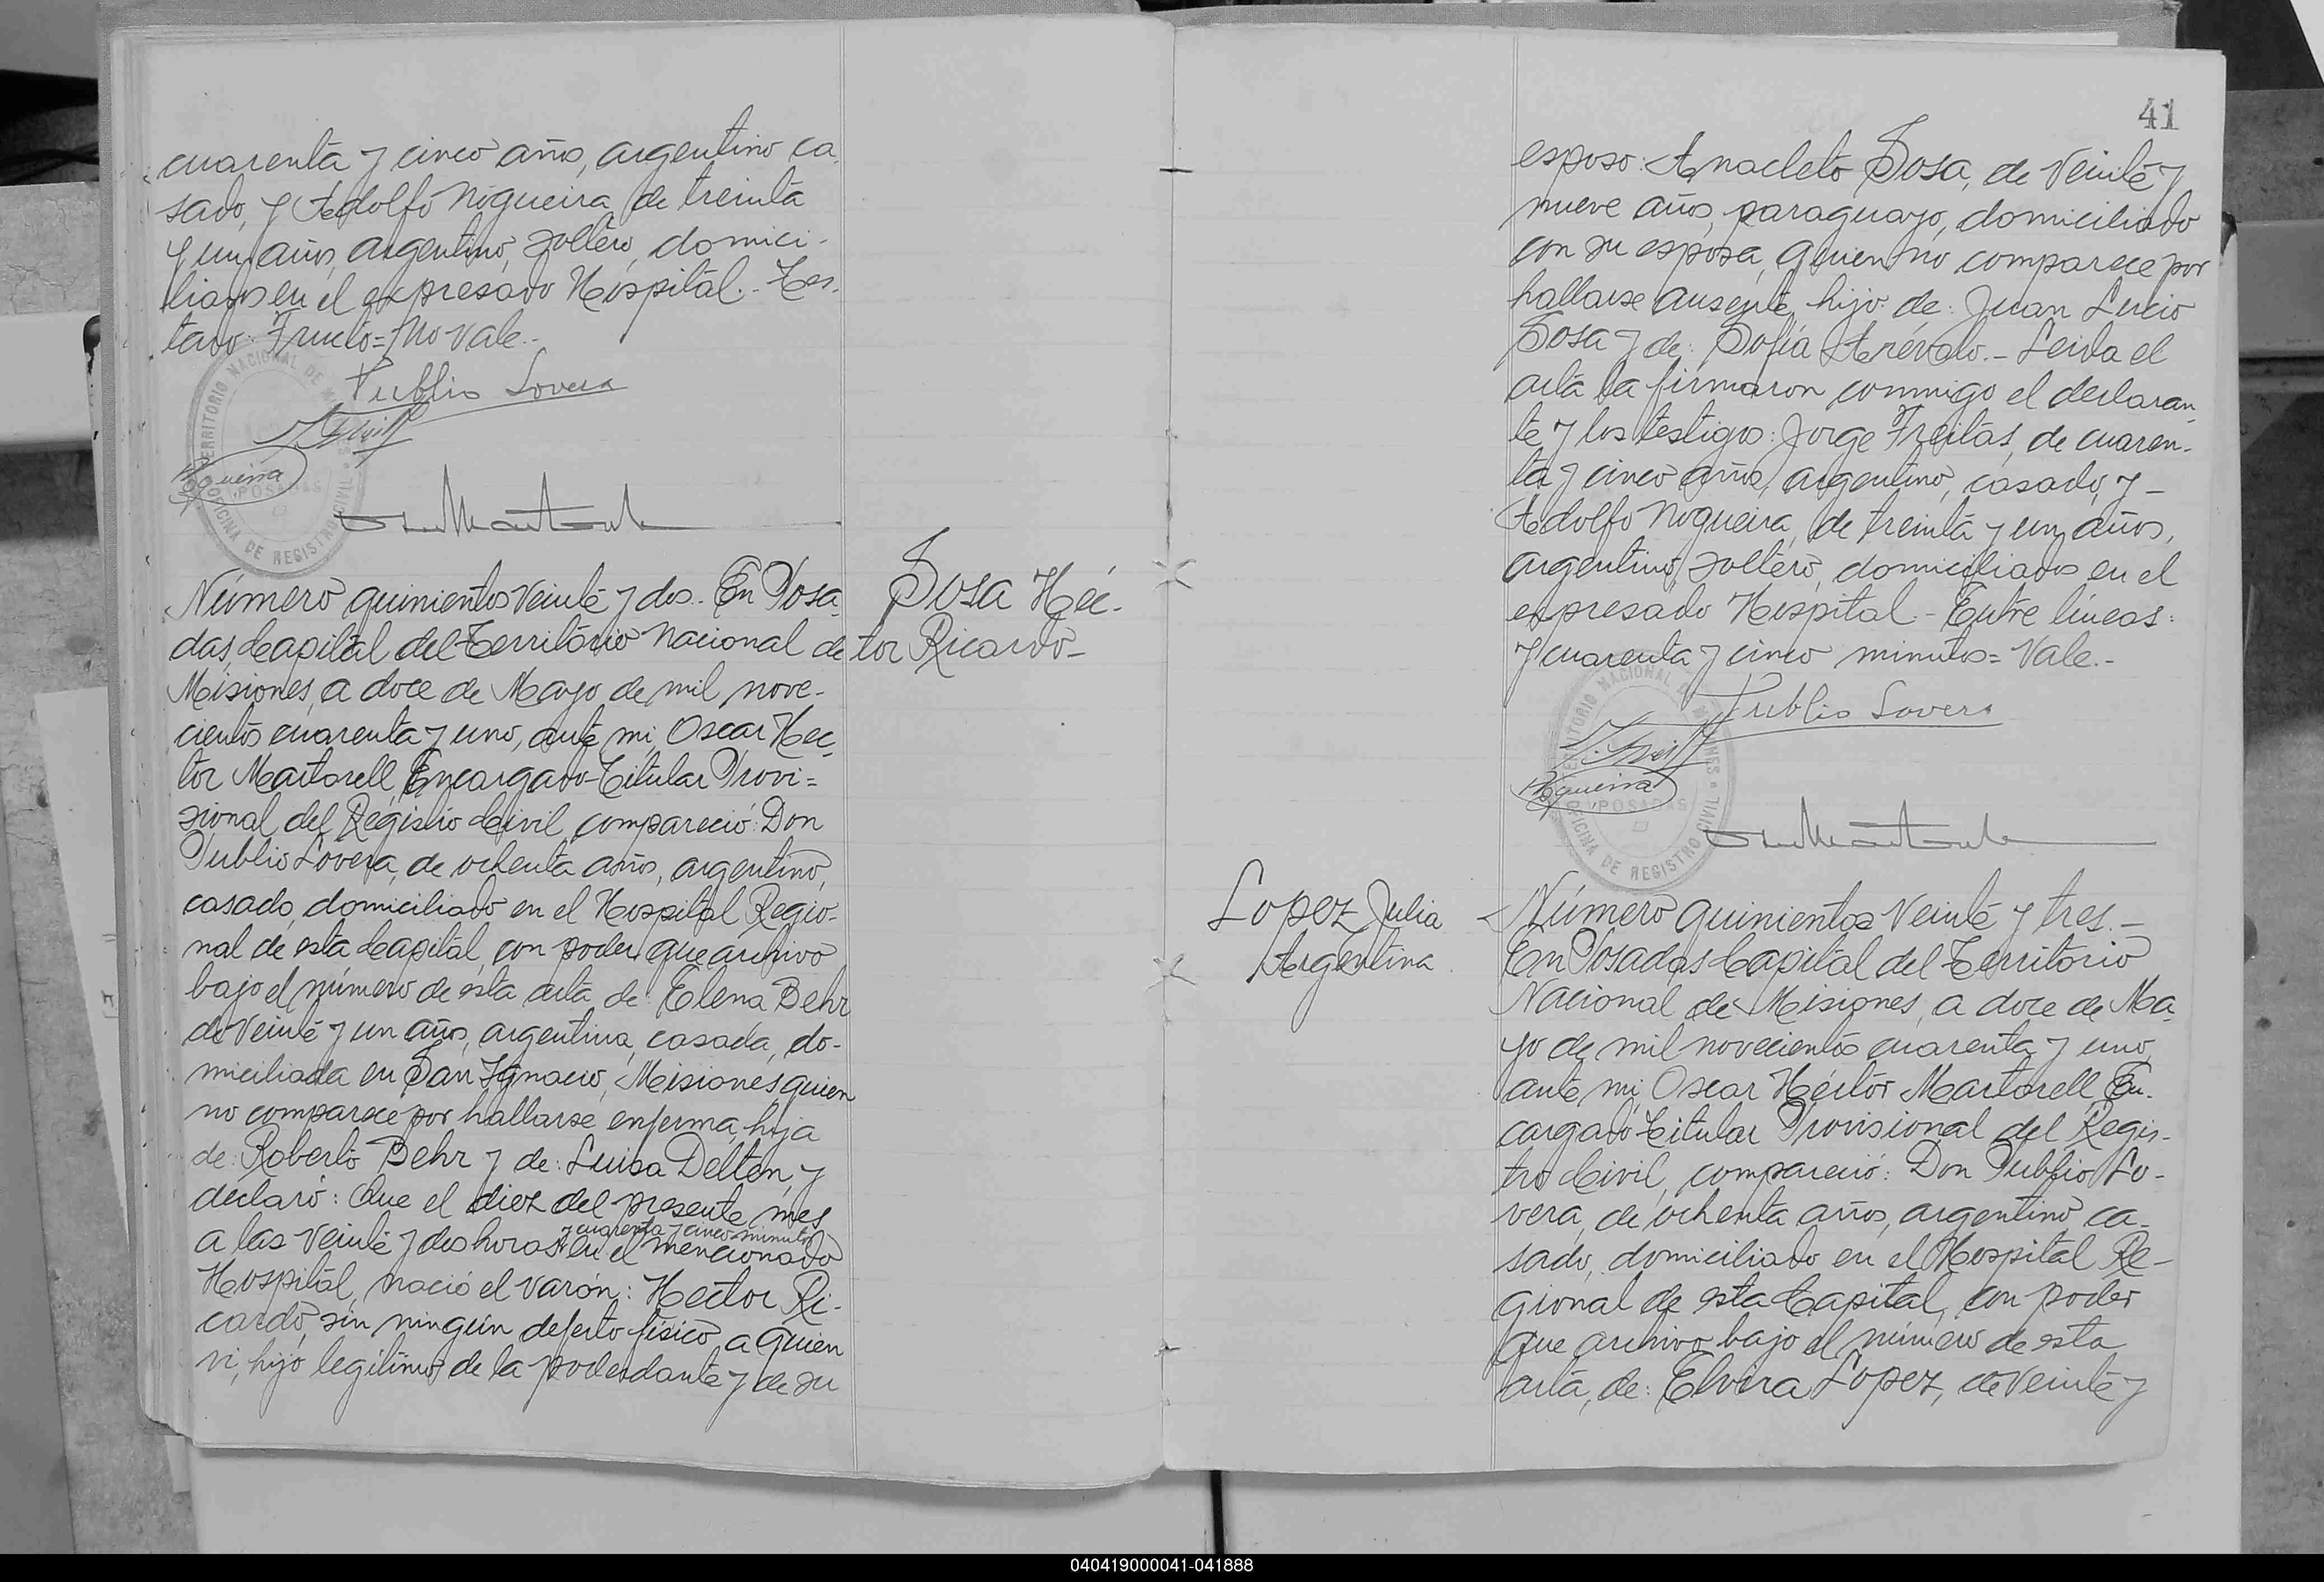 cuarenta y cinco años, argentino ca
sado, y Adolfo Nogueira, de treinta
y un años, argentino, soltero, domici-
liados en el expresado Hospital.- Tes-
tado: Fructo= No vale.-
Publio Lovera
Nogueira
TERRITORIO NACIONAL DE MISIONES
POSADAS
OFICINA DE REGISTRO CIVIL
Número quinientos veinte y dos.- En Posa
das, Capital del Territorio Nacional de
Misiones, a doce de Mayo de mil nove-
cientos cuarenta y uno, ante mi, Oscar Hec-
tor Martorell, Encargado Titular Provi=
sional del Registro Civil, compareció: Don
Publio Lovera, de ochenta años, argentino,
casado, domiciliado en el Hospital Regio-
nal de esta Capital, con poder que archivo
bajo el número de esta acta de: Elena Behr
de veinte y un años, argentina, casada, do-
miciliada en San Ignacio, Misiones, quien
no comparece por hallarse enferma, hija
de: Roberto Behr y de: Luisa Delten, y
declaró: Que el diez del presente mes
y cuarenta y cinco minutos
a las veinte y dos horas en el mencionado
Hospital, nació el varón: Hector Ri-
cardo, sin ningún defecto físico, a quien
vi, hijo legítimo de la poderdante y de su
Sosa Héc-
tor Ricardo-
41
esposo: Anacleto Sosa, de veinte y
nueve años, paraguayo, domiciliado
con su esposa, quien no comparece por
hallarse ausente, hijo de: Juan Lucio
Sosa y de: Sofía Arévalo.- Leida el
acta la firmaron conmigo el declaran
te y los testigos: Jorge Freitas, de cuaren-
ta y cinco años, argentino, casado, y -
Adolfo Nogueira, de treinta y un años,
argentino, soltero, domiciliados en el
expresado Hospital.- Entre líneas:
y cuarenta y cinco minutos= Vale.-
Publio Lovera
Nogueira
TERRITORIO NACIONAL DE MISIONES
POSADAS
OFICINA DE REGISTRO CIVIL
Lopez Julia
Argentina
Número quinientos veinte y tres.-
En Posadas, Capital del Territorio
Nacional de Misiones, a doce de Ma
yo de mil novecientos cuarenta y uno,
ante mi, Oscar Héctor Martorell, En-
cargado Titular Provisional del Regis-
tro Civil, compareció: Don Publio Lo-
vera, de ochenta años, argentino ca-
sado, domiciliado en el Hospital Re-
gional de esta Capital, con poder
que archivo bajo el número de esta
acta, de: Elvira Lopez, de veinte y
040419000041-041888